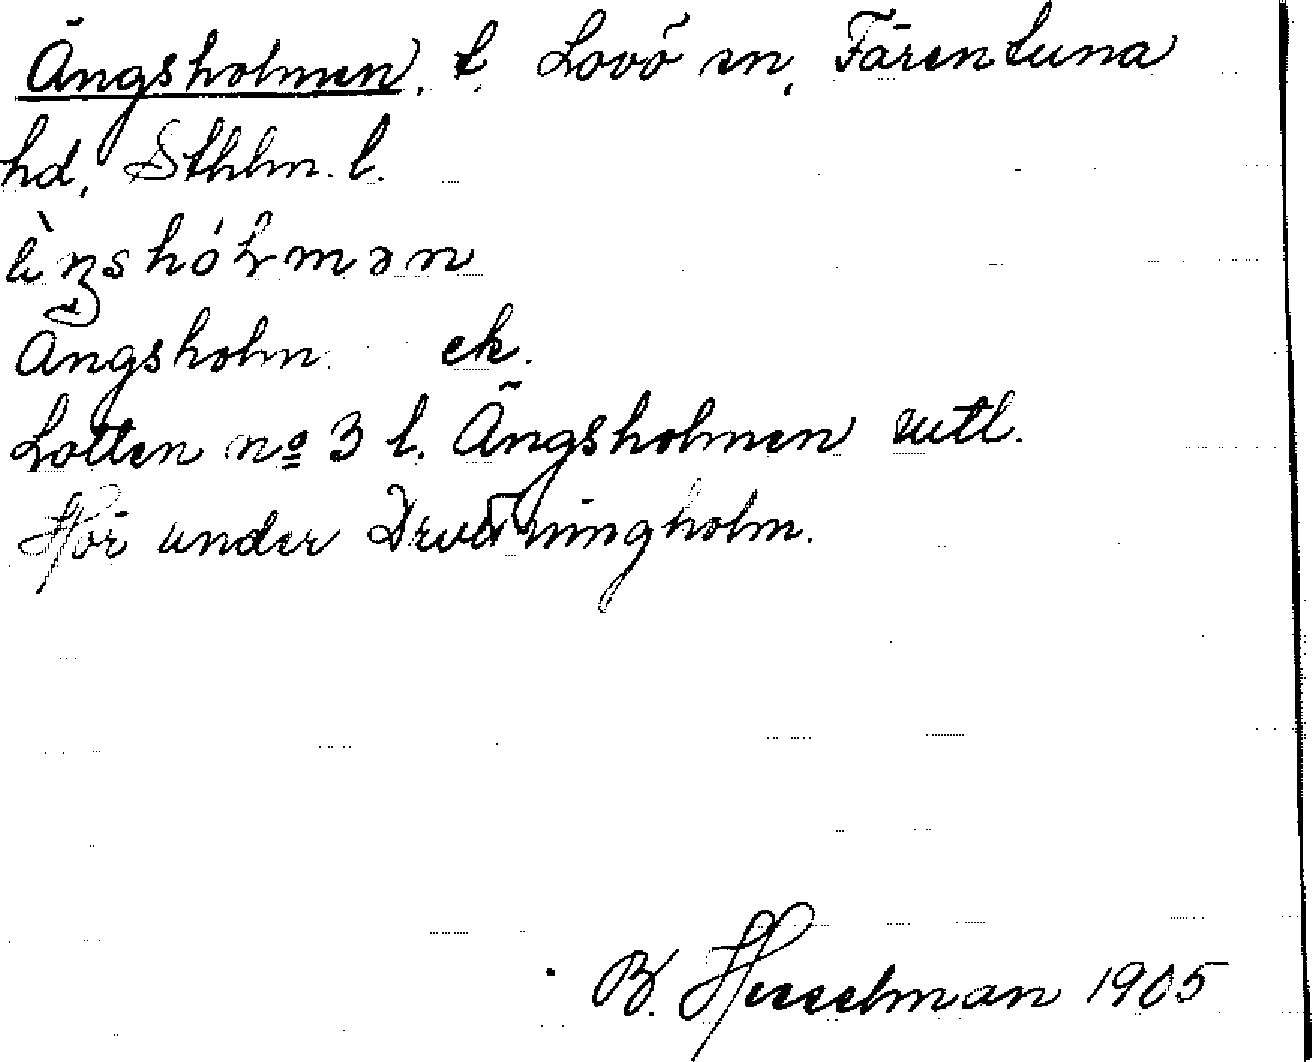 Ängsholmen, t, Lovö sn, Färentuna
hd, Sthlm. l.
Ängsholm ek.
Lotten no 3 l. Ängsholmen utl.
Hör under Drottningholm.
B. Hesselman 1905